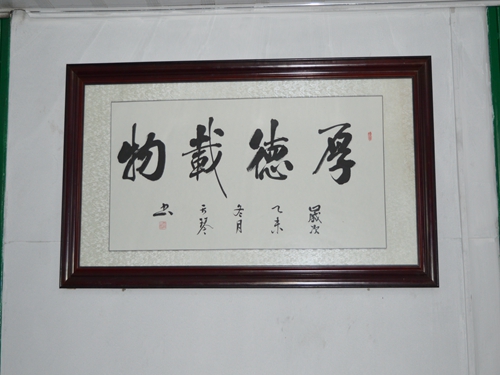 厚德載物
歲次乙未冬月云琴书